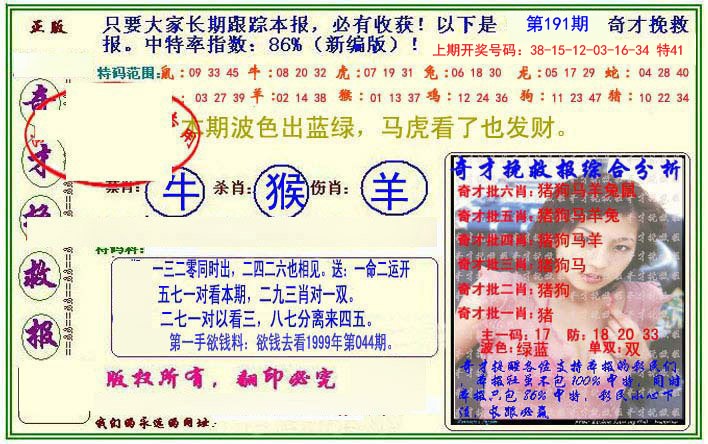 正版
只要大家长期跟踪本报，必有收获！以下是 第191期 奇才挽救
报。中特率指数：86%（新编版）！ 上期开奖号码：38-15-12-03-16-34 特41
特码范围：鼠：09 33 45 牛：08 20 32 虎：07 19 31 兔：06 18 30 龙：05 17 29 蛇：04 28 40
：03 27 39 羊：02 14 38 猴：01 13 37 鸡：12 24 36 狗：11 23 47 猪：10 22 34
本期波色出蓝绿，马虎看了也发财。
奇
才
救
报
禁肖：牛 杀肖：猴 伤肖：羊
特码料：
一三二零同时出，二四二六也相见。送：一命二运开
五七一对看本期，二九三肖对一双。
二七一对以看三，八七分离来四五。
第一手欲钱料：欲钱去看1999年第044期。
版权所有，翻印必究
我们的永远的网址：
奇才挽救报综合分析
奇才批六肖：猪狗马羊兔鼠
奇才批五肖：猪狗马羊兔
奇才批四肖：猪狗马羊
奇才批三肖：猪狗马
奇才批二肖：猪狗
奇才批一肖：猪
主一码：17 防：18 20 33
波色：绿蓝 单双：双
奇才挽救各位支持本报的彩民们
，本报虽不包100%中特，同时
本报只包86%中特，彩民小心下
注，长跟必赢